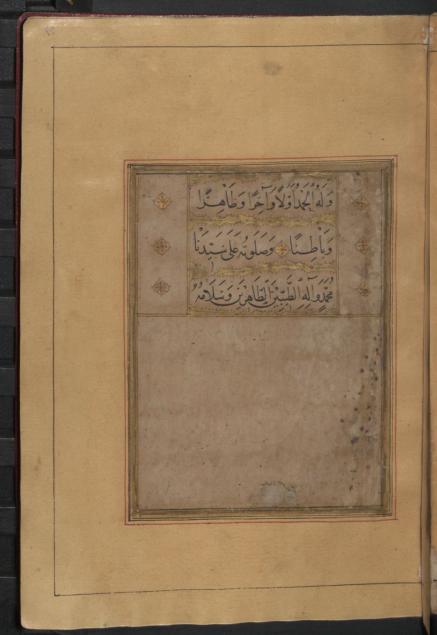 وَلَهُ الْحَمْدُ أَوَّلًا وَآخِرًا وَظَاهِرًا
وَبَاطِنًا وَصَلَوتُهُ عَلَى سَيِّدِنَا
مُحَمَّدٍ وَآلِهِ الطَّيِّبِينَ الطَّاهِرِينَ وَسَلَامُهُ